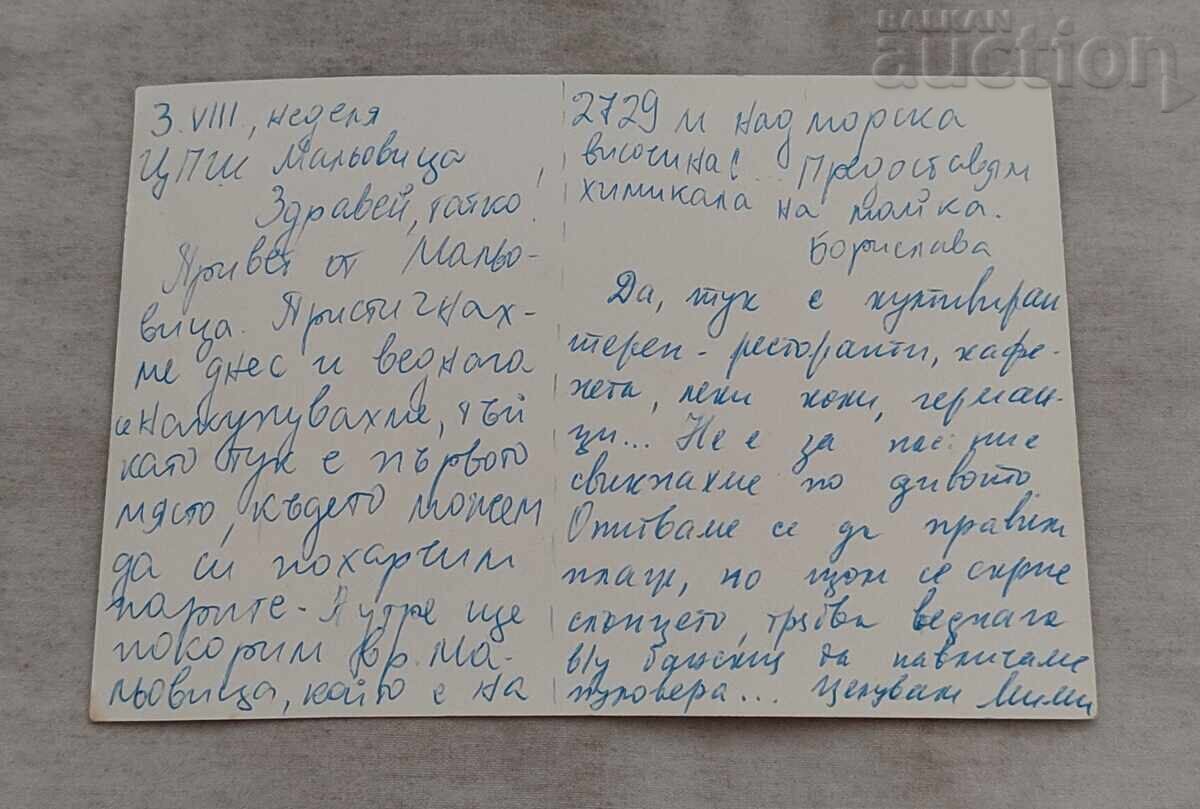 BALKAN
auction
3. VIII., неделя
ЦПШ Мальовица
Здравей, татко!
Привет от Мальо-
вица. Пристигнах-
ме днес и веднага
се напазарувахме, тъй
като тук е първото
място, където можем
да си похарчим
парите. А утре ще
покорим вр. Ма-
льовица, който е на
2729 м надморска
височина! Предоставям
химикала на майка.
Борислава
Да, тук е култивиран
терен - ресторанти, кафе-
нета, леки коли, герман-
ци... Не е за нас: ние
свикнахме по дивото.
Опитваме се да правим
плаж, но щом се скрие
слънцето, трябва веднага
в/у бански да навличаме
пуловера... Целувам Мими